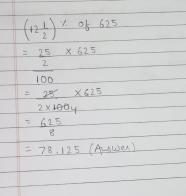 (12 1/2) % of 625
= 25/2 × 625
100
= 25 × 625
2×100 4
= 625
8
= 78.125 (Answer)